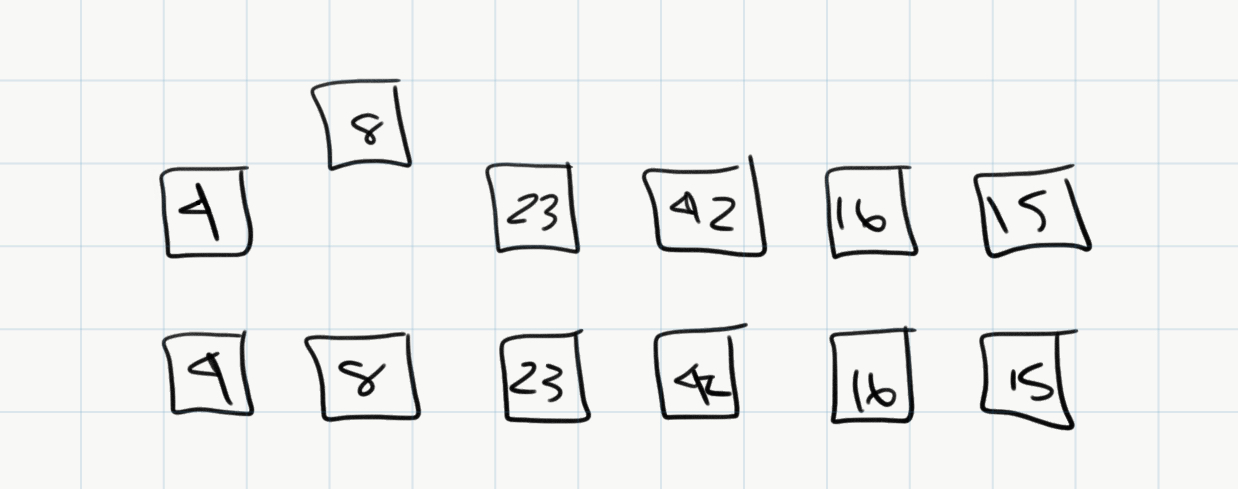 8
4 23 42 16 15
4 8 23 42 16 15